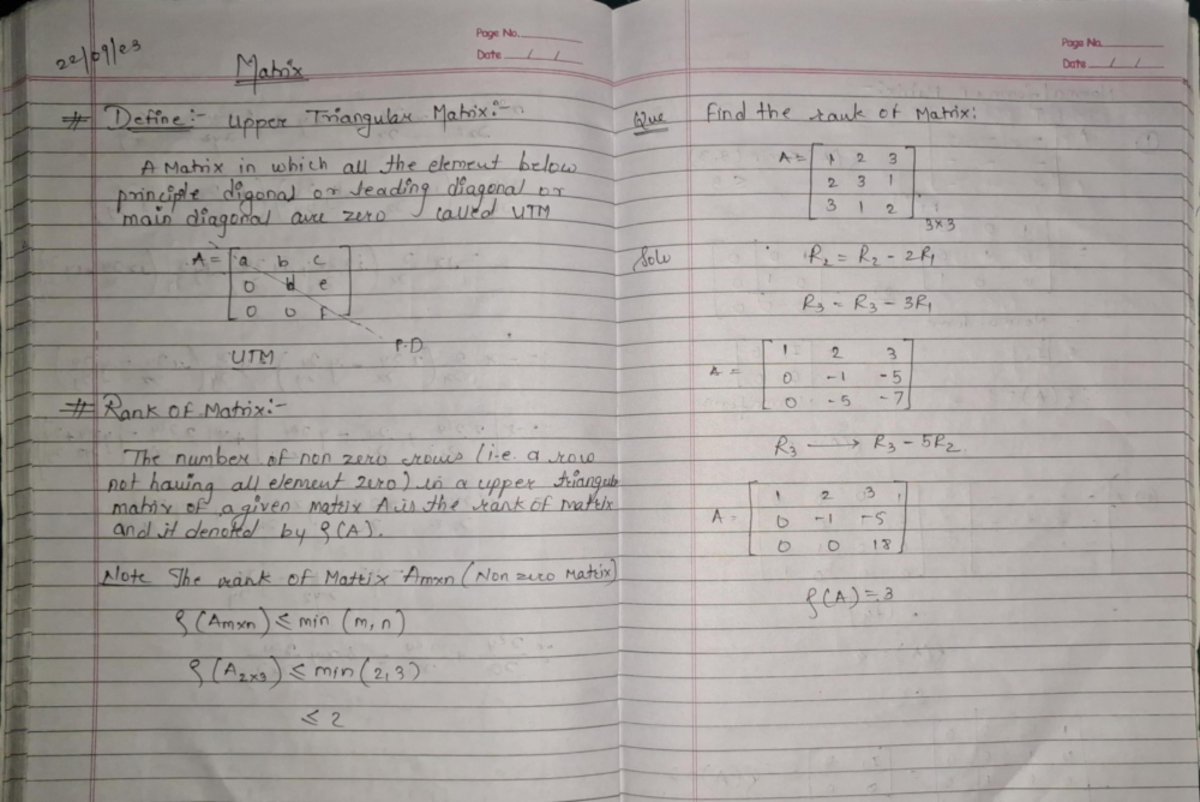 22/09/23
Page No.
Date / /
Matrix
# Define:- Upper Triangular Matrix:-
A Matrix in which all the element below
principle digonal or leading diagonal or
main diagonal are zero called UTM
A = [a b c
0 d e
0 0 f]
P.D
UTM
# Rank of Matrix:-
The number of non zero rows (i.e. a row
not having all element zero) in a upper triangular
matrix of a given matrix A is the rank of matrix
and it denoted by ρ(A).
Note The rank of Matrix Amxn (Non zero Matrix)
ρ(Amxn) ≤ min (m,n)
ρ(A2x3) ≤ min (2,3)
≤ 2
Page No.
Date / /
Que Find the rank of Matrix:
A = [1 2 3
2 3 1
3 1 2] 3x3
Solu R2 = R2 - 2R1
R3 = R3 - 3R1
A = [1 2 3
0 -1 -5
0 -5 -7]
R3 → R3 - 5R2
A = [1 2 3
0 -1 -5
0 0 18]
ρ(A) = 3